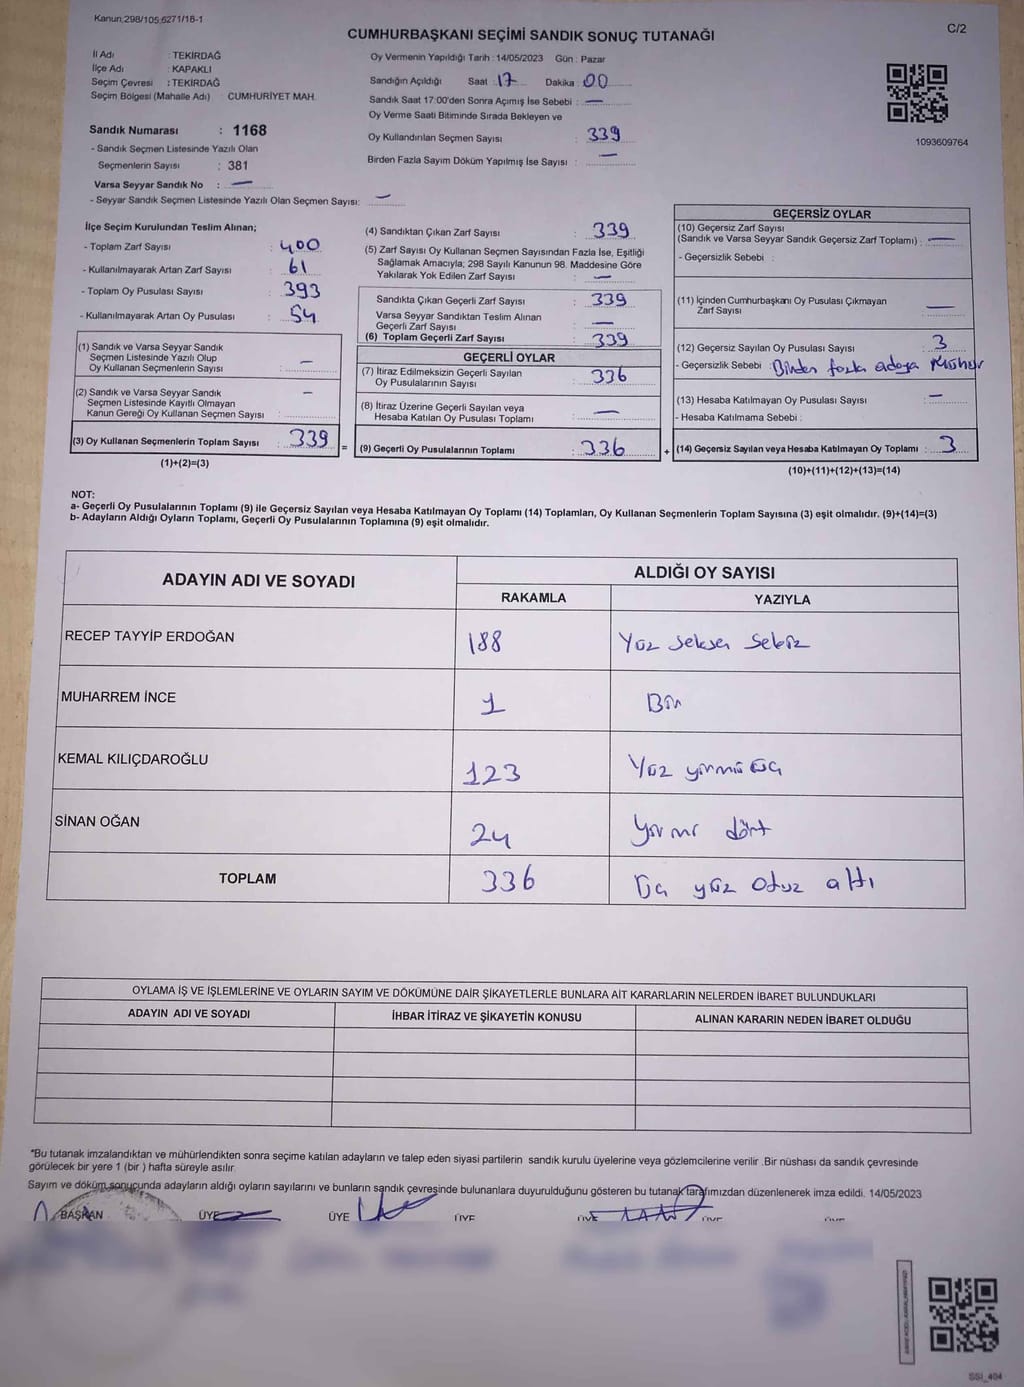 Kanun;298/105;6271/18-1
C/2
CUMHURBAŞKANI SEÇİMİ SANDIK SONUÇ TUTANAĞI
İl Adı : TEKİRDAĞ
İlçe Adı : KAPAKLI
Seçim Çevresi : TEKİRDAĞ
Seçim Bölgesi (Mahalle Adı) : CUMHURİYET MAH.
Sandık Numarası : 1168
- Sandık Seçmen Listesinde Yazılı Olan
Seçmenlerin Sayısı : 381
Varsa Seyyar Sandık No : —
- Seyyar Sandık Seçmen Listesinde Yazılı Olan Seçmen Sayısı: —
Oy Vermenin Yapıldığı Tarih : 14/05/2023 Gün : Pazar
Sandığın Açıldığı Saat : 17 Dakika : 00
Sandık Saat 17:00'den Sonra Açımış İse Sebebi : —
Oy Verme Saati Bitiminde Sırada Bekleyen ve
Oy Kullandırılan Seçmen Sayısı : 339
Birden Fazla Sayım Döküm Yapılmış İse Sayısı : —
1093609764
İlçe Seçim Kurulundan Teslim Alınan;
- Toplam Zarf Sayısı : 400
- Kullanılmayarak Artan Zarf Sayısı : 61
- Toplam Oy Pusulası Sayısı : 393
- Kullanılmayarak Artan Oy Pusulası : 54
(1) Sandık ve Varsa Seyyar Sandık
Seçmen Listesinde Yazılı Olup
Oy Kullanan Seçmenlerin Sayısı : —
(2) Sandık ve Varsa Seyyar Sandık
Seçmen Listesinde Kayıtlı Olmayan
Kanun Gereği Oy Kullanan Seçmen Sayısı : —
(3) Oy Kullanan Seçmenlerin Toplam Sayısı : 339 =
(1)+(2)=(3)
(4) Sandıktan Çıkan Zarf Sayısı : 339
(5) Zarf Sayısı Oy Kullanan Seçmen Sayısından Fazla İse, Eşitliği
Sağlamak Amacıyla; 298 Sayılı Kanunun 98. Maddesine Göre
Yakılarak Yok Edilen Zarf Sayısı : —
Sandıkta Çıkan Geçerli Zarf Sayısı : 339
Varsa Seyyar Sandıktan Teslim Alınan
Geçerli Zarf Sayısı : —
(6) Toplam Geçerli Zarf Sayısı : 339
GEÇERLİ OYLAR
(7) İtiraz Edilmeksizin Geçerli Sayılan
Oy Pusulalarının Sayısı : 336
(8) İtiraz Üzerine Geçerli Sayılan veya
Hesaba Katılan Oy Pusulası Toplamı : —
(9) Geçerli Oy Pusulalarının Toplamı : 336 +
GEÇERSİZ OYLAR
(10) Geçersiz Zarf Sayısı
(Sandık ve Varsa Seyyar Sandık Geçersiz Zarf Toplamı) : —
- Geçersizlik Sebebi :
(11) İçinden Cumhurbaşkanı Oy Pusulası Çıkmayan
Zarf Sayısı : —
(12) Geçersiz Sayılan Oy Pusulası Sayısı : 3
- Geçersizlik Sebebi : Birden fazla adaya Mühür
(13) Hesaba Katılmayan Oy Pusulası Sayısı : —
- Hesaba Katılmama Sebebi :
(14) Geçersiz Sayılan veya Hesaba Katılmayan Oy Toplamı : 3
(10)+(11)+(12)+(13)=(14)
NOT:
a- Geçerli Oy Pusulalarının Toplamı (9) ile Geçersiz Sayılan veya Hesaba Katılmayan Oy Toplamı (14) Toplamları, Oy Kullanan Seçmenlerin Toplam Sayısına (3) eşit olmalıdır. (9)+(14)=(3)
b- Adayların Aldığı Oyların Toplamı, Geçerli Oy Pusulalarının Toplamına (9) eşit olmalıdır.
ADAYIN ADI VE SOYADI
ALDIĞI OY SAYISI
RAKAMLA YAZIYLA
RECEP TAYYİP ERDOĞAN 188 Yüz seksen sekiz
MUHARREM İNCE 1 Bir
KEMAL KILIÇDAROĞLU 123 Yüz yirmi üç
SİNAN OĞAN 24 Yirmi dört
TOPLAM 336 Üç yüz otuz altı
OYLAMA İŞ VE İŞLEMLERİNE VE OYLARIN SAYIM VE DÖKÜMÜNE DAİR ŞİKAYETLERLE BUNLARA AİT KARARLARIN NELERDEN İBARET BULUNDUKLARI
ADAYIN ADI VE SOYADI İHBAR İTİRAZ VE ŞİKAYETİN KONUSU ALINAN KARARIN NEDEN İBARET OLDUĞU
*Bu tutanak imzalandıktan ve mühürlendikten sonra seçime katılan adayların ve talep eden siyasi partilerin sandık kurulu üyelerine veya gözlemcilerine verilir .Bir nüshası da sandık çevresinde
görülecek bir yere 1 (bir ) hafta süreyle asılır.
Sayım ve döküm sonucunda adayların aldığı oyların sayılarını ve bunların sandık çevresinde bulunanlara duyurulduğunu gösteren bu tutanak tarafımızdan düzenlenerek imza edildi. 14/05/2023
BAŞKAN ÜYE ÜYE ÜYE ÜYE ÜYE ÜYE
SSİ_404